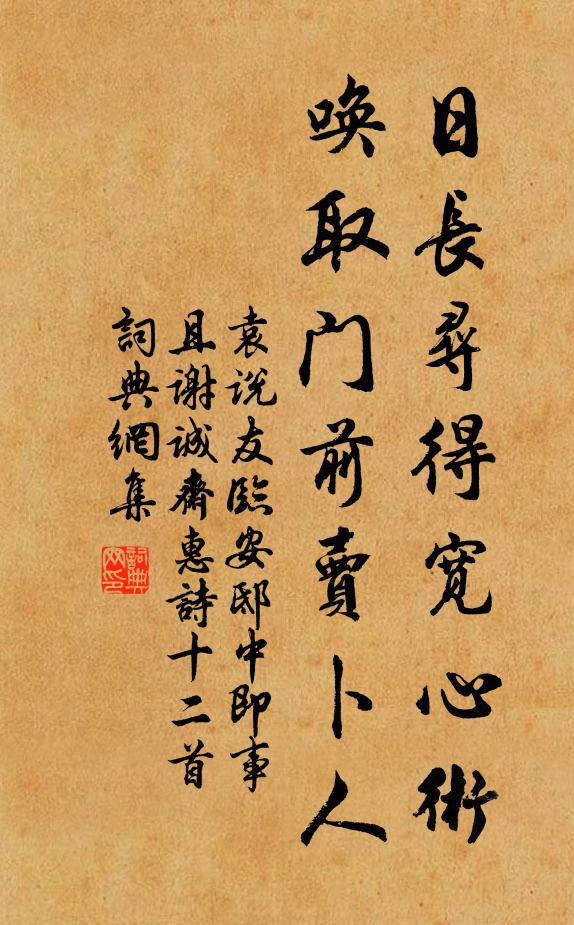 日長尋得寬心術
喚取門前賣卜人
袁説友臨安邸中即事
且謝誠齋惠詩十二首
詞典網集
詞典网印